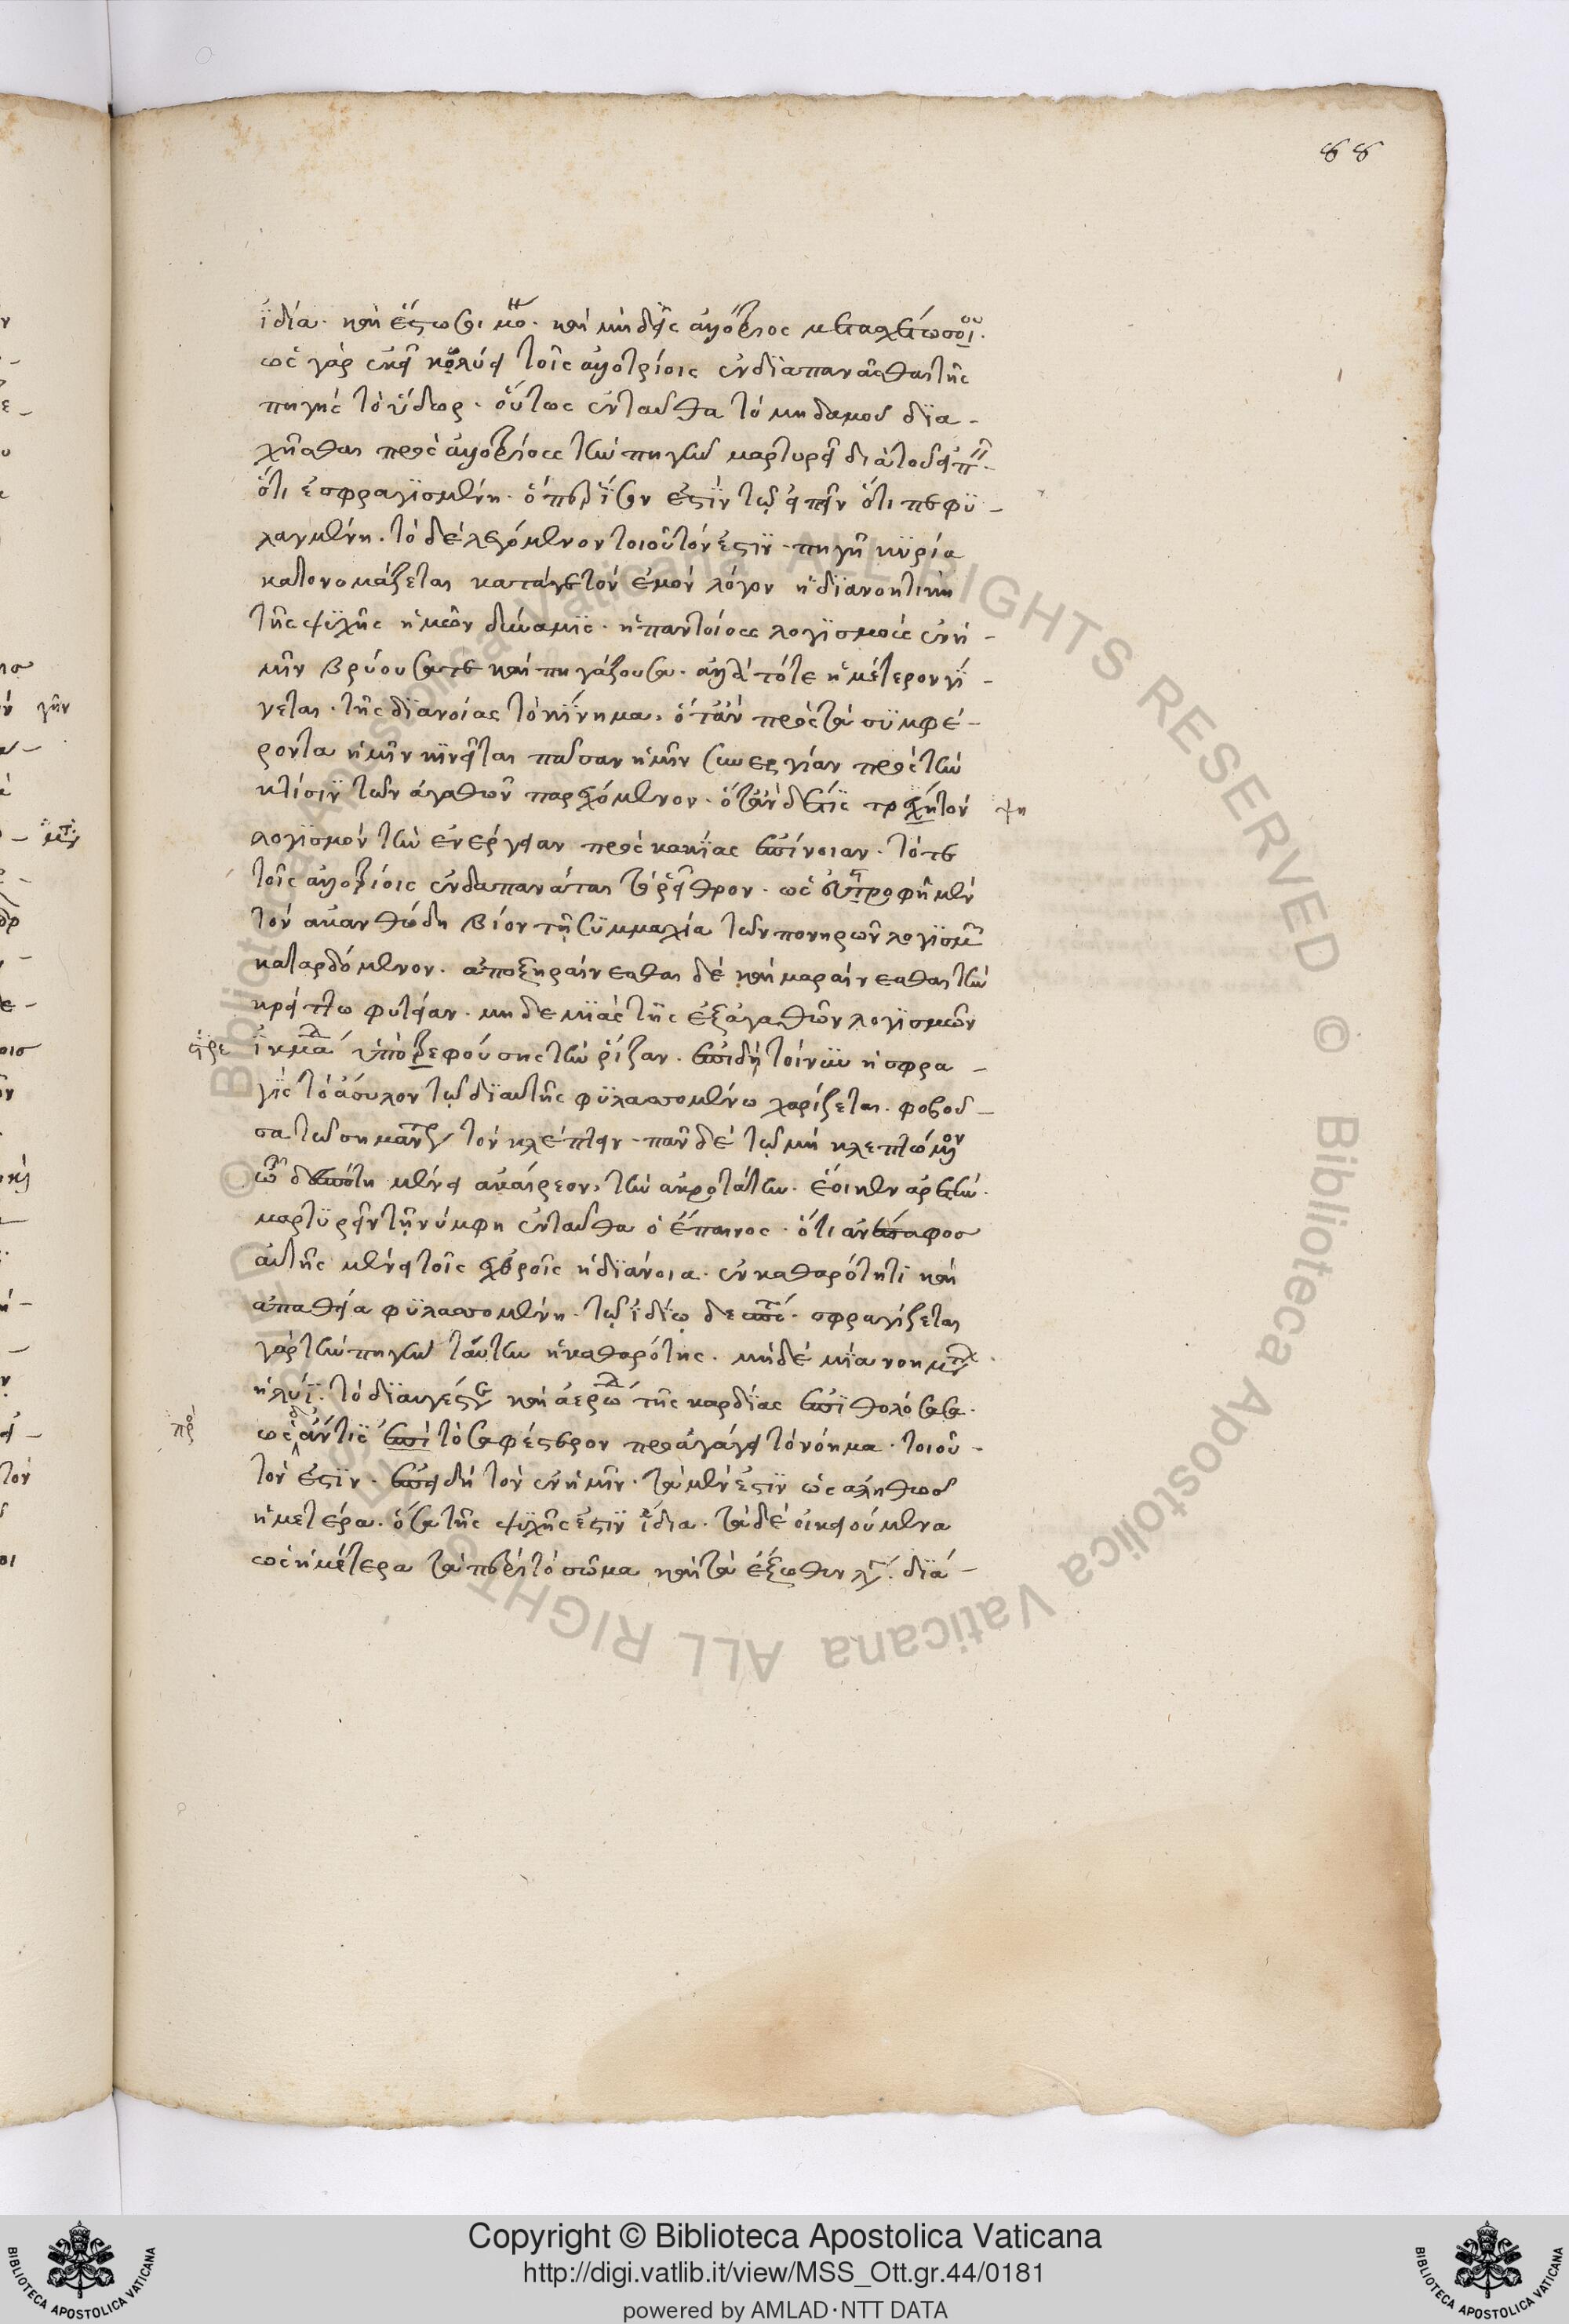 88
ἰδία. καὶ ἔστωσαν μόνῳ. καὶ μηδεὶς ἀλλότριος μετασχέτω σοι.
ὡς γὰρ ἐκεῖ κωλύει τοῖς ἀλλοτρίοις ἐνδαπανᾶσθαι τῆς
πηγῆς τὸ ὕδωρ. οὕτως ἐνταῦθα τὸ μηδαμοῦ δια-
χεῖσθαι πρὸς ἀλλοτρίους τὴν πηγὴν μαρτυρεῖ διὰ τοῦ εἰπεῖν.
ὅτι ἐσφραγισμένη. ὅπερ ἴσον ἐστὶν τῷ εἰπεῖν ὅτι πεφυ-
λαγμένη. τὸ δὲ λεγόμενον τοιοῦτόν ἐστιν. πηγὴ κυρία
κατονομάζεται κατά γε τὸν ἐμὸν λόγον ἡ διανοητικὴ
τῆς ψυχῆς ἡμῶν δύναμις. ἡ παντοίους λογισμοὺς ἐν ἡ-
μῖν βρύουσά τε καὶ πηγάζουσα. ἀλλὰ τότε ἡμέτερον γί-
νεται. τῆς διανοίας τὸ κίνημα, ὅταν πρὸς τὰ συμφέ-
ροντα ἡμῖν κινεῖται πᾶσαν ἡμῖν συνεργίαν πρὸς τὴν
κτίσιν τῶν ἀγαθῶν παρεχόμενον. ὅταν δέ τις τρέψῃ τὸν ψη
λογισμὸν τὴν ἐνέργειαν πρὸς κακίας ἐπίνοιαν. τότε
τοῖς ἀλλοτρίοις ἐνδαπανᾶται τὸ ῥεῖθρον. ὡς εὐτροφεῖ μὲν
τὸν ἀκανθώδη βίον τῇ συμμαχία τῶν πονηρῶν λογισμῶν
καταρδόμενον. ἀποξηραίνεσθαι δὲ καὶ μαραίνεσθαι τὴν
κρείττω φυτείαν. μηδεμιᾶς τῆς ἐξ ἀγαθῶν λογισμῶν
ἰκμάδος ὑποτρεφούσης τὴν ῥίζαν. ἐπειδὴ τοίνυν ἡ σφρα-
γὶς τὸ ἄσυλον τῷ δι' αὐτῆς φυλασσομένω χαρίζεται. φοβοῦ-
σα τῷ σημάντρῳ τὸν κλέπτην. πᾶν δὲ τῷ μὴ κλεπτόμενον
τῷ δεσπότη μένει ἀκαίρεον, τὴν ἀκροτάτην. ἔοικεν ἀρετὴν.
μαρτυρεῖν τῇ νύμφη ἐνταῦθα ὁ ἔπαινος. ὅτι ἀνέπαφος
αὐτῆς μένει τοῖς ἐχθροῖς ἡ διάνοια. ἐν καθαρότητι καὶ
ἀπαθεία φυλασσομένη. τῷ ἰδίῳ δεσπότῃ. σφραγίζεται
γὰρ τὴν πηγὴν ταύτην ἡ καθαρότης. μηδὲ μία νοημάτων
ἡλυί. τὸ διαυγές τε καὶ ἀερῶδες τῆς καρδίας ἐπιθολώσασα.
ὡς δ' ἄν τις ἐπὶ τὸ σαφέστερον προαγάγει τὸ νόημα. τοιοῦ-
τόν ἐστιν. ἐπειδὴ τὸν ἐν ἡμῖν. τὰ μέν ἐστιν ὡς ἀληθῶς
ἡμετέρα. ὅσα τῆς ψυχῆς ἐστιν ἴδια. τὰ δὲ οἰκειούμενα
ὡς ἡμέτερα τὰ περὶ τὸ σῶμα καὶ τὰ ἔξωθεν λέγω. διά-
Copyright © Biblioteca Apostolica Vaticana
http://digi.vatlib.it/view/MSS_Ott.gr.44/0181
powered by AMLAD·NTT DATA